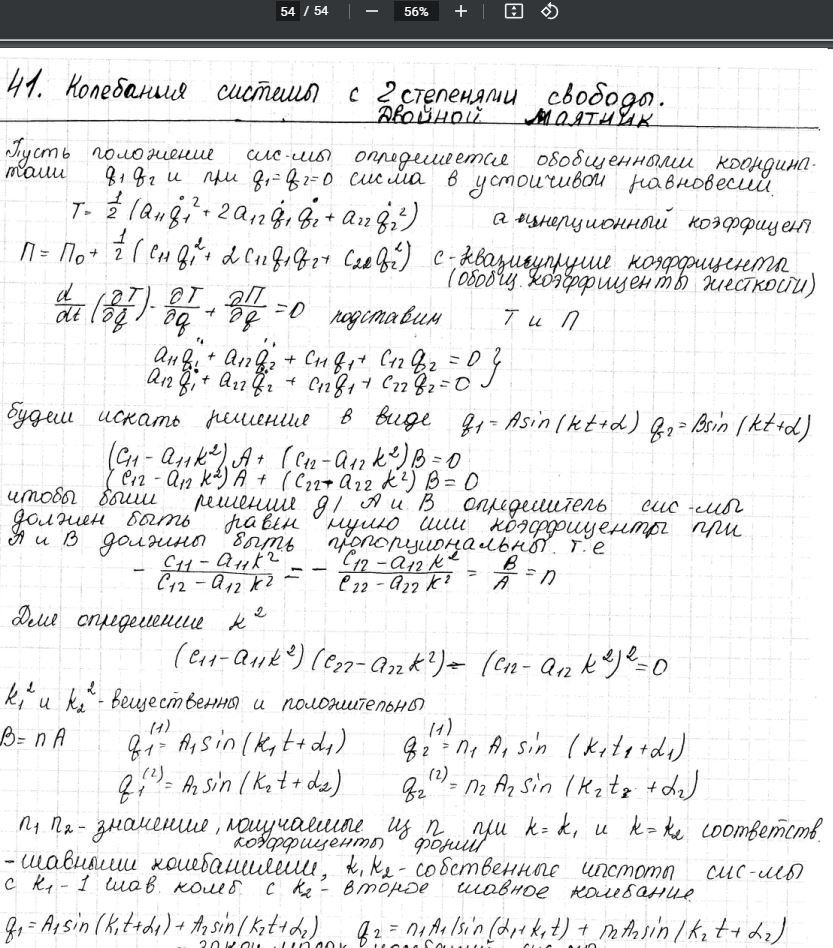 54 / 54 56%
41. Колебания системы с 2 степенями свободы.
Двойной маятник
Пусть положение сис-мы определяется обобщенными координа-
тами q₁ q₂ и при q₁=q₂=0 сисма в устойчивом равновесии.
T = 1/2 (a₁₁q̇₁² + 2a₁₂q̇₁q̇₂ + a₂₂q̇₂²) a инерционный коэффициент
П = П₀ + 1/2 (c₁₁q₁² + 2c₁₂q₁q₂ + c₂₂q₂²) c - квазиупругие коэффициенты
(обобщ. коэффициенты жесткости)
d/dt (∂T/∂q̇) - ∂T/∂q + ∂П/∂q = 0 подставим T и П
a₁₁q̈₁ + a₁₂q̈₂ + c₁₁q₁ + c₁₂q₂ = 0 }
a₁₂q̈₁ + a₂₂q̈₂ + c₁₂q₁ + c₂₂q₂ = 0
будем искать решение в виде q₁ = Asin(kt+α) q₂ = Bsin(kt+α)
(c₁₁ - a₁₁k²)A + (c₁₂ - a₁₂k²)B = 0
(c₁₂ - a₁₂k²)A + (c₂₂ - a₂₂k²)B = 0
чтобы были решение д/ A и B определитель сис-мы
должен быть равен нулю или коэффициенты при
A и B должны быть пропорциональны. т.е
- (c₁₁ - a₁₁k²)/(c₁₂ - a₁₂k²) = - (c₁₂ - a₁₂k²)/(c₂₂ - a₂₂k²) = B/A = n
Для определение k²
(c₁₁ - a₁₁k²)(c₂₂ - a₂₂k²) - (c₁₂ - a₁₂k²)² = 0
k₁² и k₂² - вещественны и положительны
B = nA q₁⁽¹⁾ = A₁sin(k₁t+α₁) q₂⁽¹⁾ = n₁A₁sin(k₁t₁+α₁)
q₁⁽²⁾ = A₂sin(k₂t+α₂) q₂⁽²⁾ = n₂A₂sin(k₂t₂+α₂)
n₁ n₂ - значение, получаемые из n при k=k₁ и k=k₂ соответств.
коэффициенты формы
- главными колебаниями, k₁k₂ - собственные частоты сис-мы
с k₁ - 1 глав. колеб с k₂ - второе главное колебание.
q₁ = A₁sin(k₁t+α₁) + A₂sin(k₂t+α₂) q₂ = n₁A₁(sin(α₁+k₁t) + n₂A₂sin(k₂t+α₂)